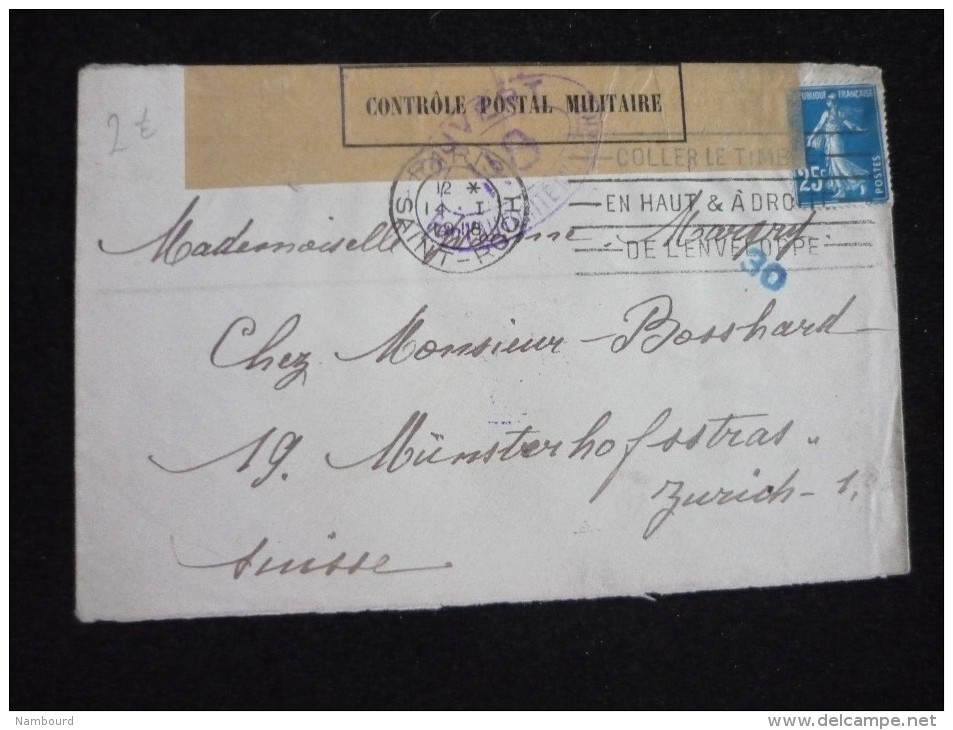 2 €
CONTRÔLE POSTAL MILITAIRE
OUVERT
RÉPUBLIQUE FRANÇAISE
25c
POSTES
12 *
SAINT-ROCH
COLLER LE TIMB
EN HAUT & À DROITE
DE L'ENVELOPPE
30
Mademoiselle Margry.
Chez Monsieur Bosshard
19. Münsterhofsstras„
Zurich-1.
Suisse
Nambourd
www.delcampe.net